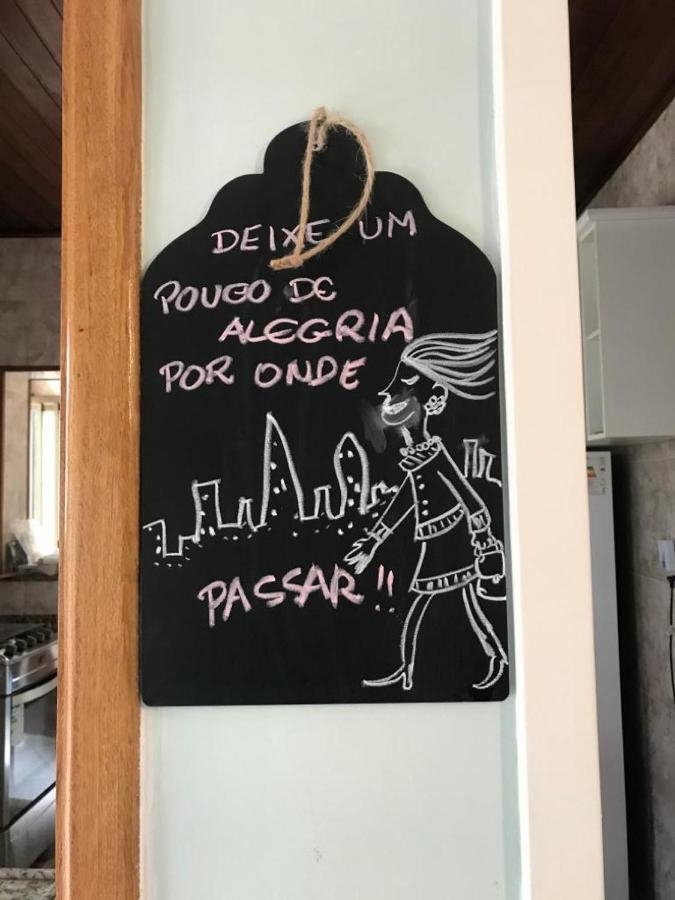 DEIXE UM
POUCO DE
ALEGRIA
POR ONDE
PASSAR!!